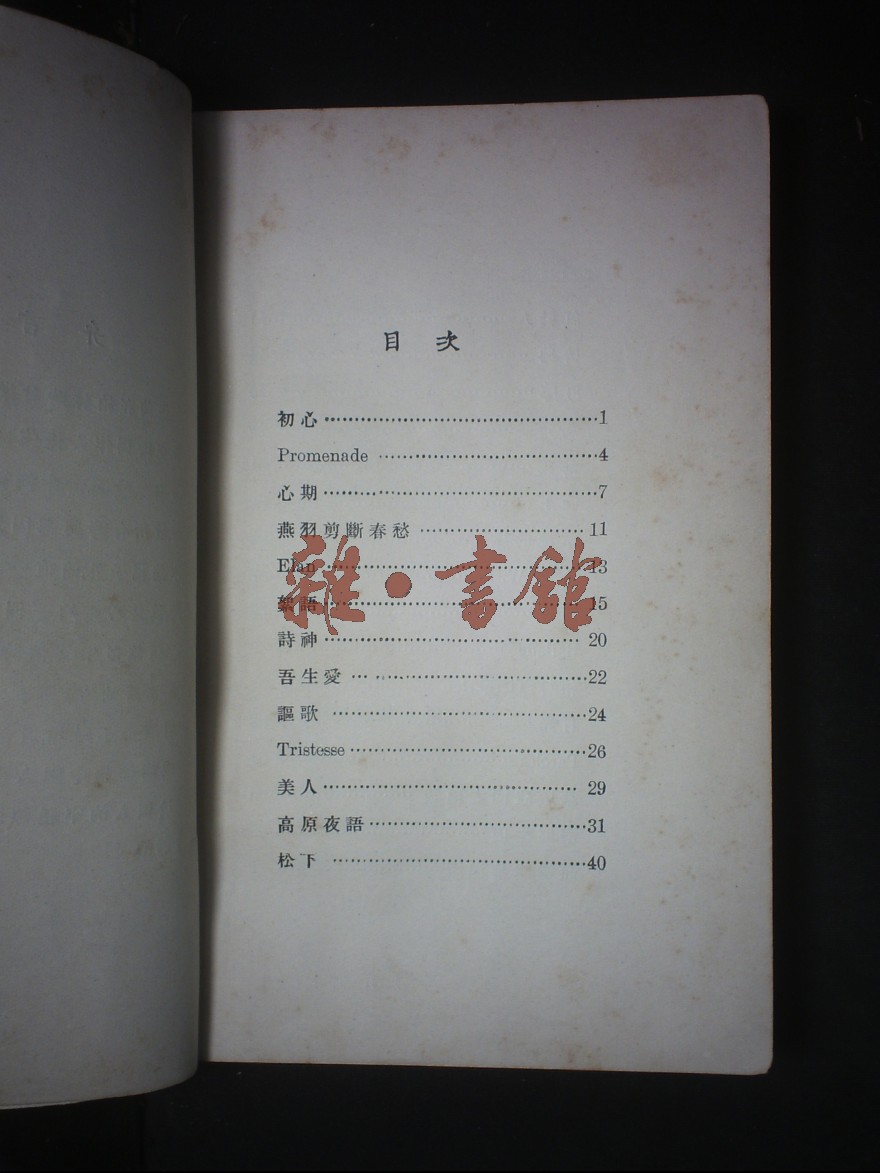 目次
初心……………………………………1
Promenade ……………………………4
心期……………………………………7
燕羽剪斷春愁 …………………… 11
Elan ……………………………………13
絮語……………………………………15
詩神………………………………… 20
吾生愛 ………………………………22
謳歌 …………………………………24
Tristesse………………………………26
美人………………………………… 29
高原夜語……………………………31
松下 …………………………………40
雜·書館